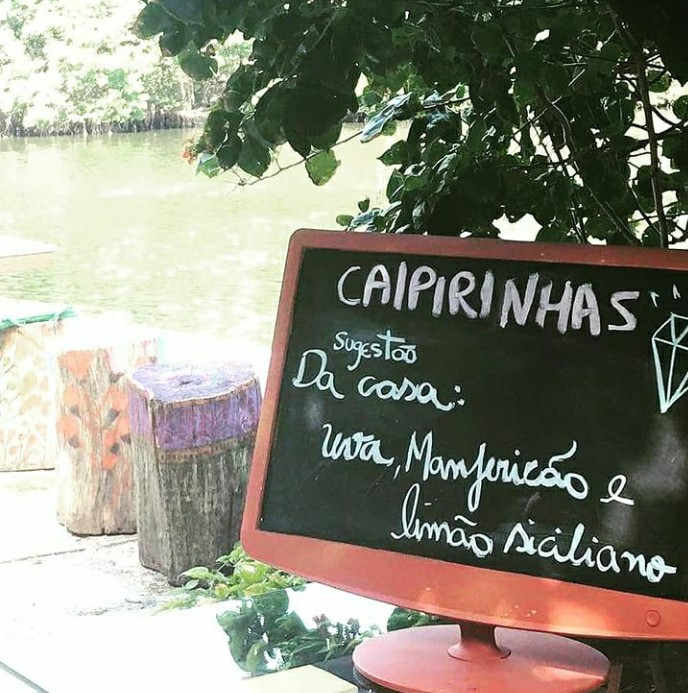 CAIPIRINHAS
sugestão
Da casa:
uva, Manjericão e
limão siciliano